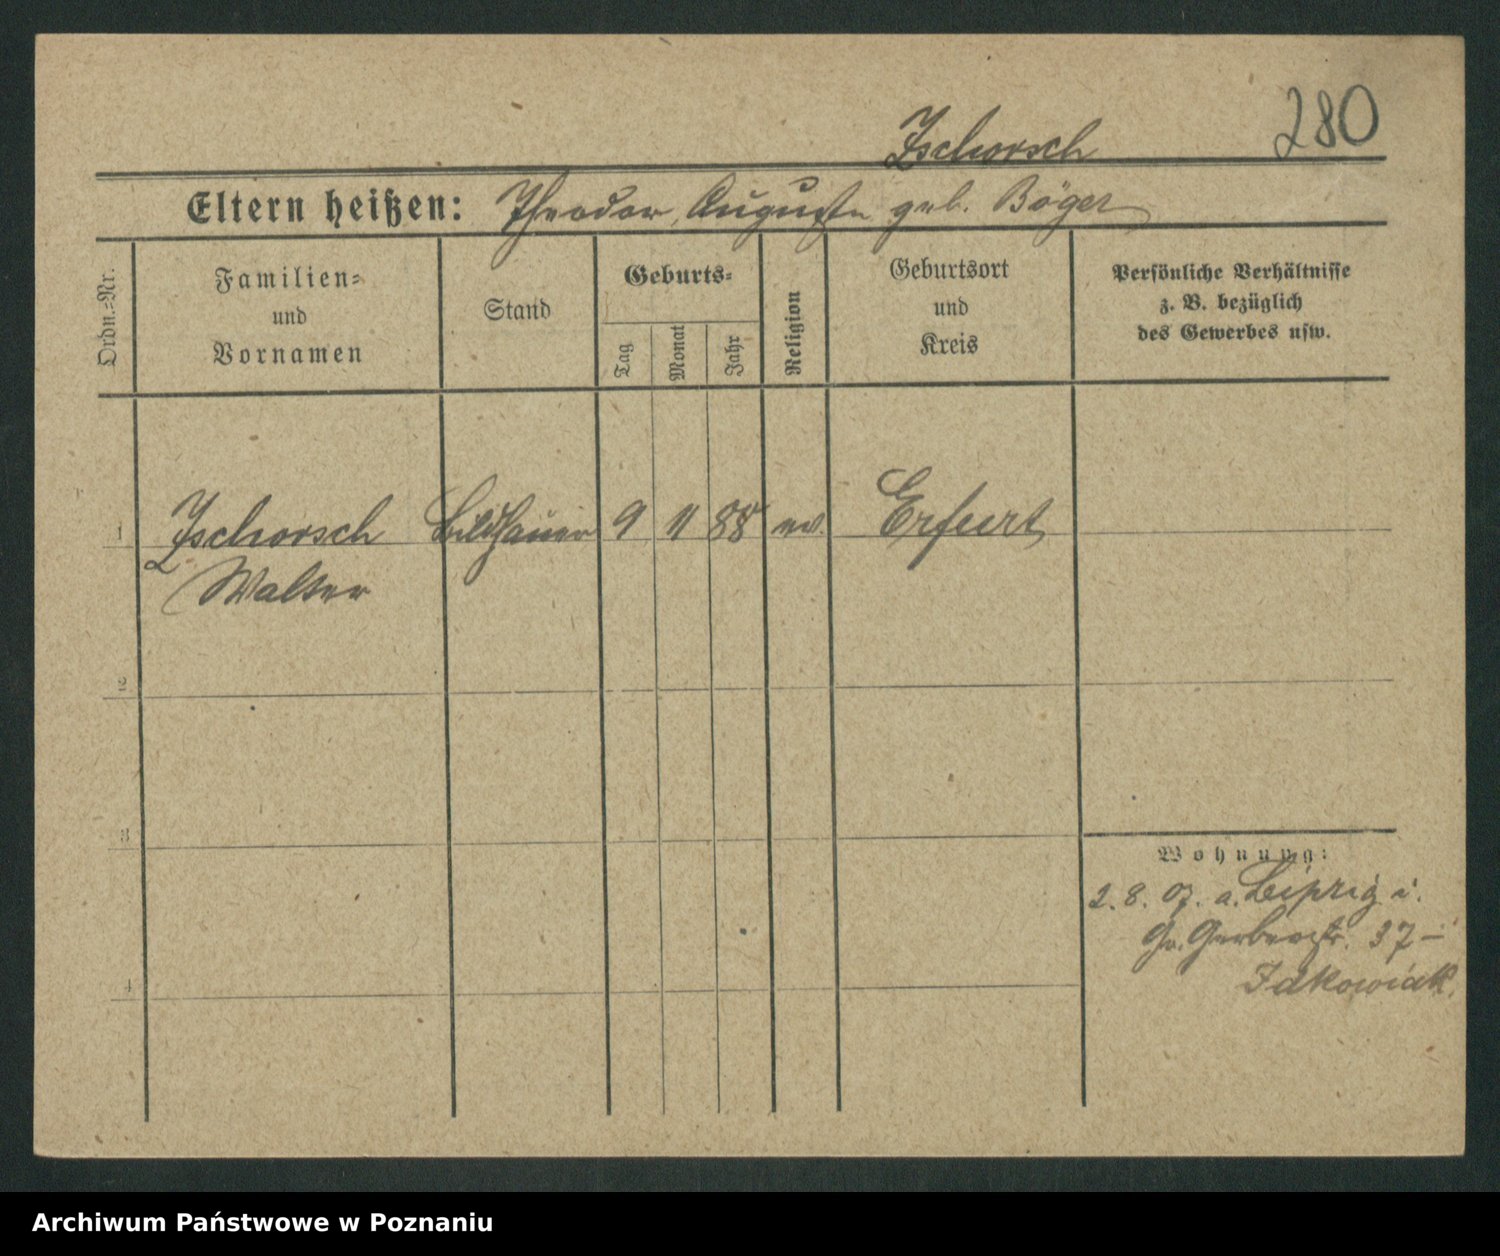 280
Zschorsch
Eltern heißen: Theodor, Auguste geb. Böger
Ordn.-Nr.
Familien-
und
Vornamen
Stand
Geburts-
Tag
Monat
Jahr
Religion
Geburtsort
und
Kreis
Persönliche Verhältnisse
z. B. bezüglich
des Gewerbes usw.
1 Zschorsch Bildhauer 9 11 88 ev. Erfurt
Walter
2
3
4
Wohnung:
2. 8. 07. a. Leipzig i.
Gr. Gerberstr. 37 –
Idkowiak.
Archiwum Państwowe w Poznaniu